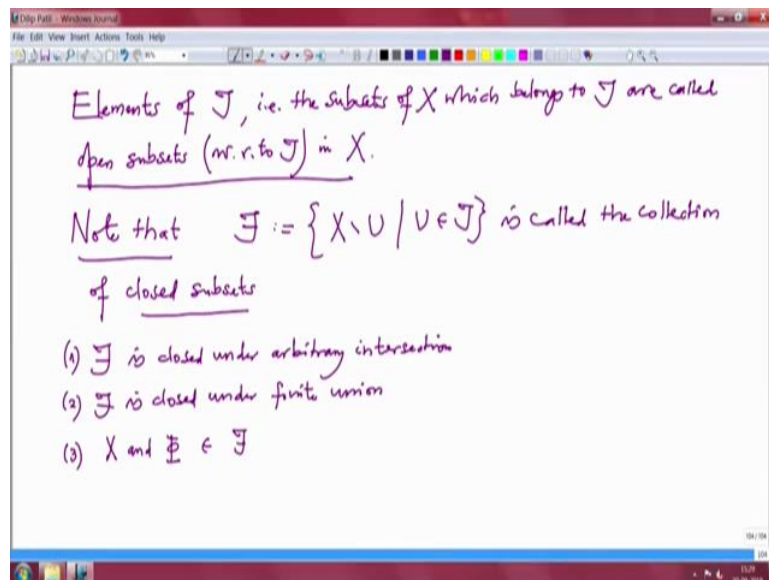 Dilip Patil - Windows Journal
File Edit View Insert Actions Tools Help
Elements of J, i.e. the subsets of X which belongs to J are called
open subsets (w.r.to J) in X.
Note that F := {X \ U / U ∈ J} is called the collection
of closed subsets
(1) F is closed under arbitrary intersection
(2) F is closed under finite union
(3) X and Φ ∈ F
104/104
104
15:29